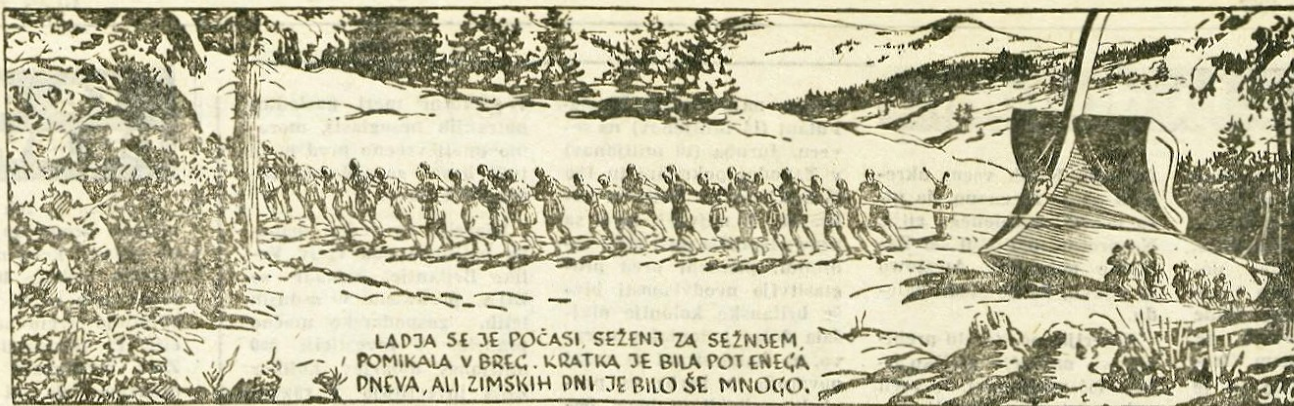 LADJA SE JE POČASI, SEŽENJ ZA SEŽNJEM,
POMIKALA V BREG. KRATKA JE BILA POT ENEGA
DNEVA, ALI ZIMSKIH DNI JE BILO ŠE MNOGO.
340